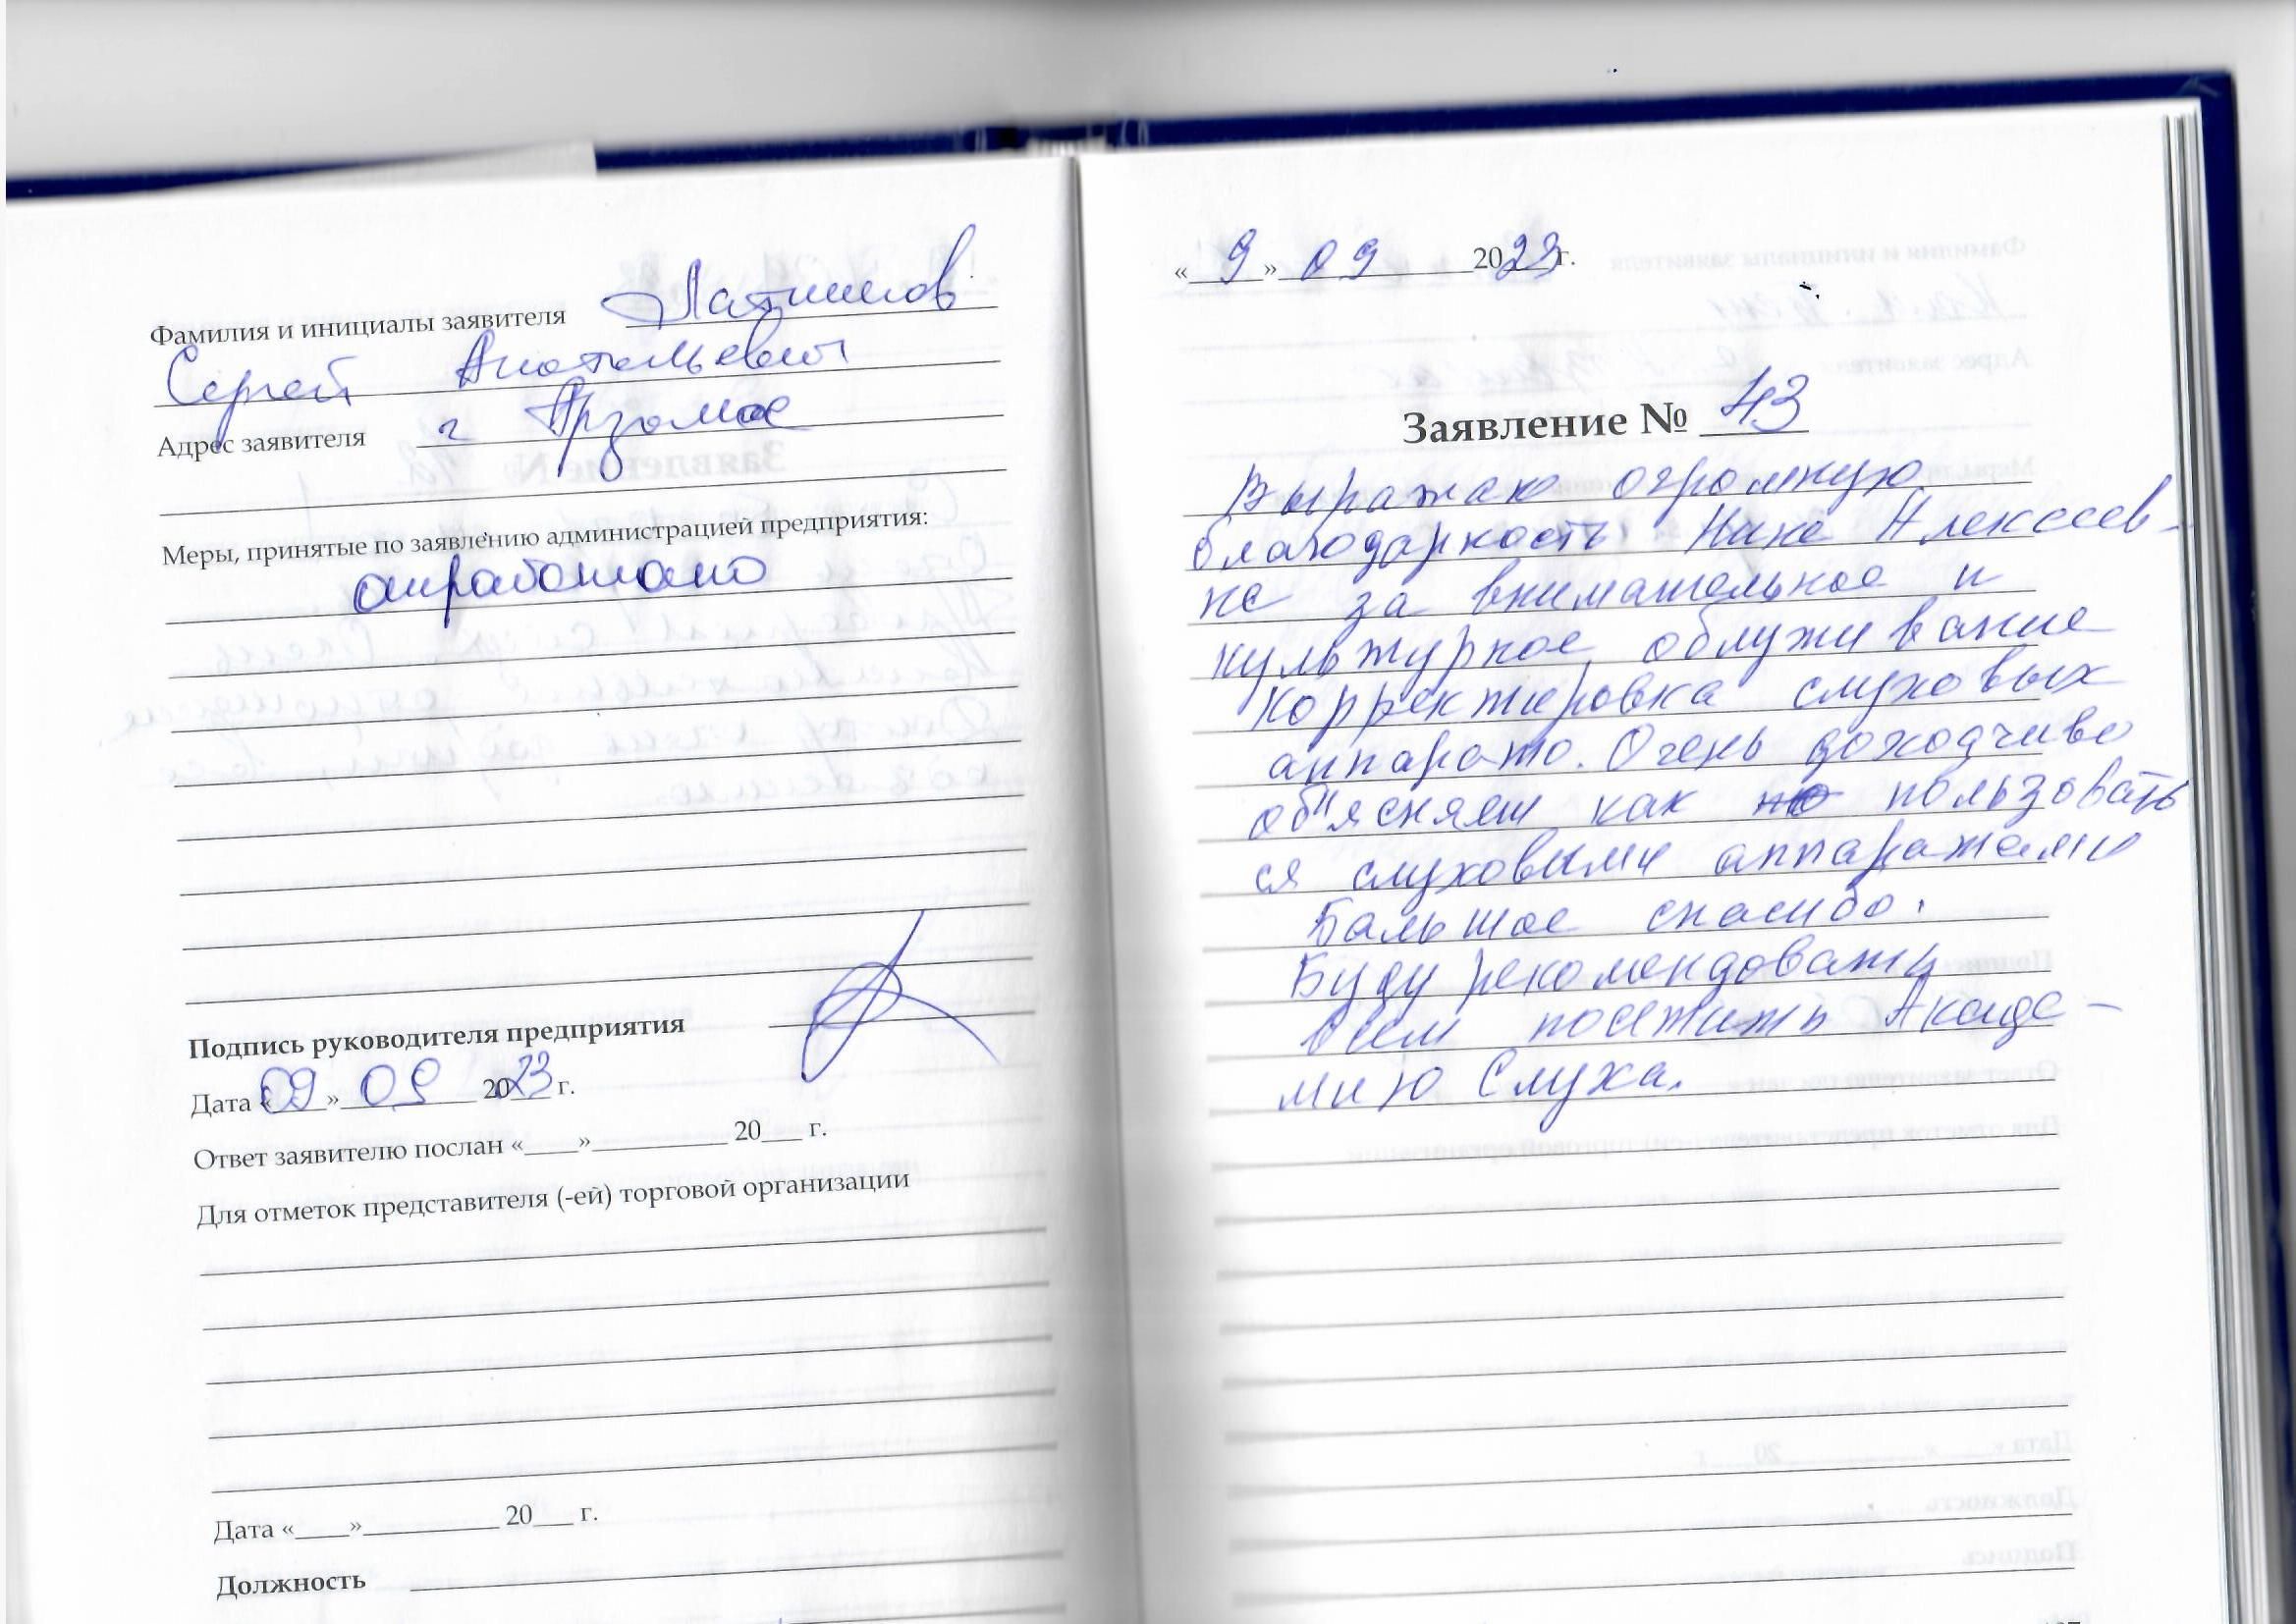 Фамилия и инициалы заявителя Латышов
Сергей Анатольевич
Адрес заявителя г Арзамас
Меры, принятые по заявлению администрацией предприятия:
отработано
Подпись руководителя предприятия
Дата «09» 09 2023 г.
Ответ заявителю послан «____»__________ 20___ г.
Для отметок представителя (-ей) торговой организации
Дата «____»__________ 20___ г.
Должность
«9» 09 2023 г.
Заявление № 43
Выражаю огромную
благодарность Нине Алексеев-
не за внимательное и
культурное облуживание
корректировка слуховых
аппарато. Очень доходчиво
объясняет как пользовать
ся слуховыми аппаратами
Бальшое спасибо.
Буду рекомендовать
всем посетить Акаде-
мию Слуха.